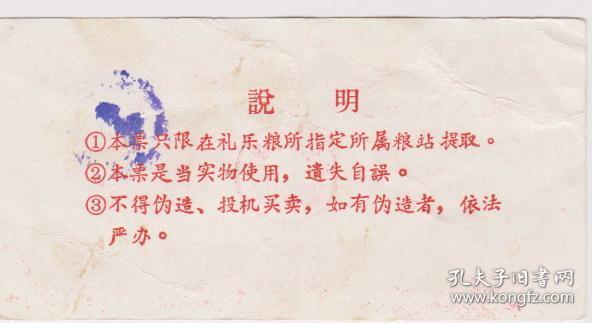 說 明
①本票只限在礼乐粮所指定所属粮站提取。
②本票是当实物使用，遺失自誤。
③不得伪造、投机买卖，如有伪造者，依法
严办。
孔夫子旧书网
www.kongfz.com